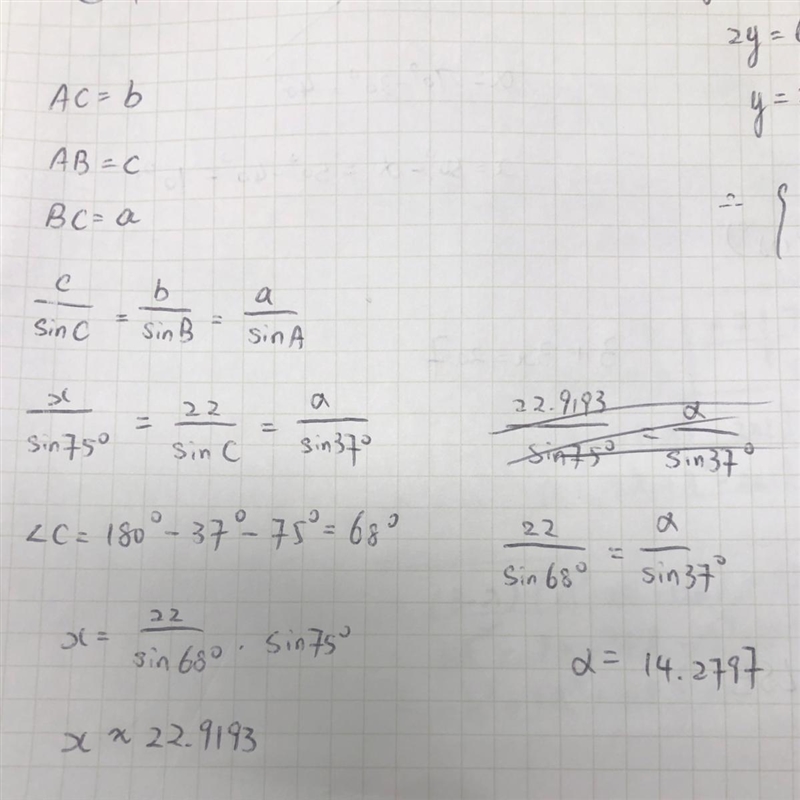 AC = b
AB = c
BC = a
c/sin C = b/sin B = a/sin A
x/sin 75° = 22/sin C = a/sin 37°
∠C = 180° - 37° - 75° = 68°
x = 22/sin 68° · sin 75°
x ≈ 22.9193
2y =
y =
∴ {
22.9193/sin 75° = a/sin 37°
22/sin 68° = a/sin 37°
a = 14.2797